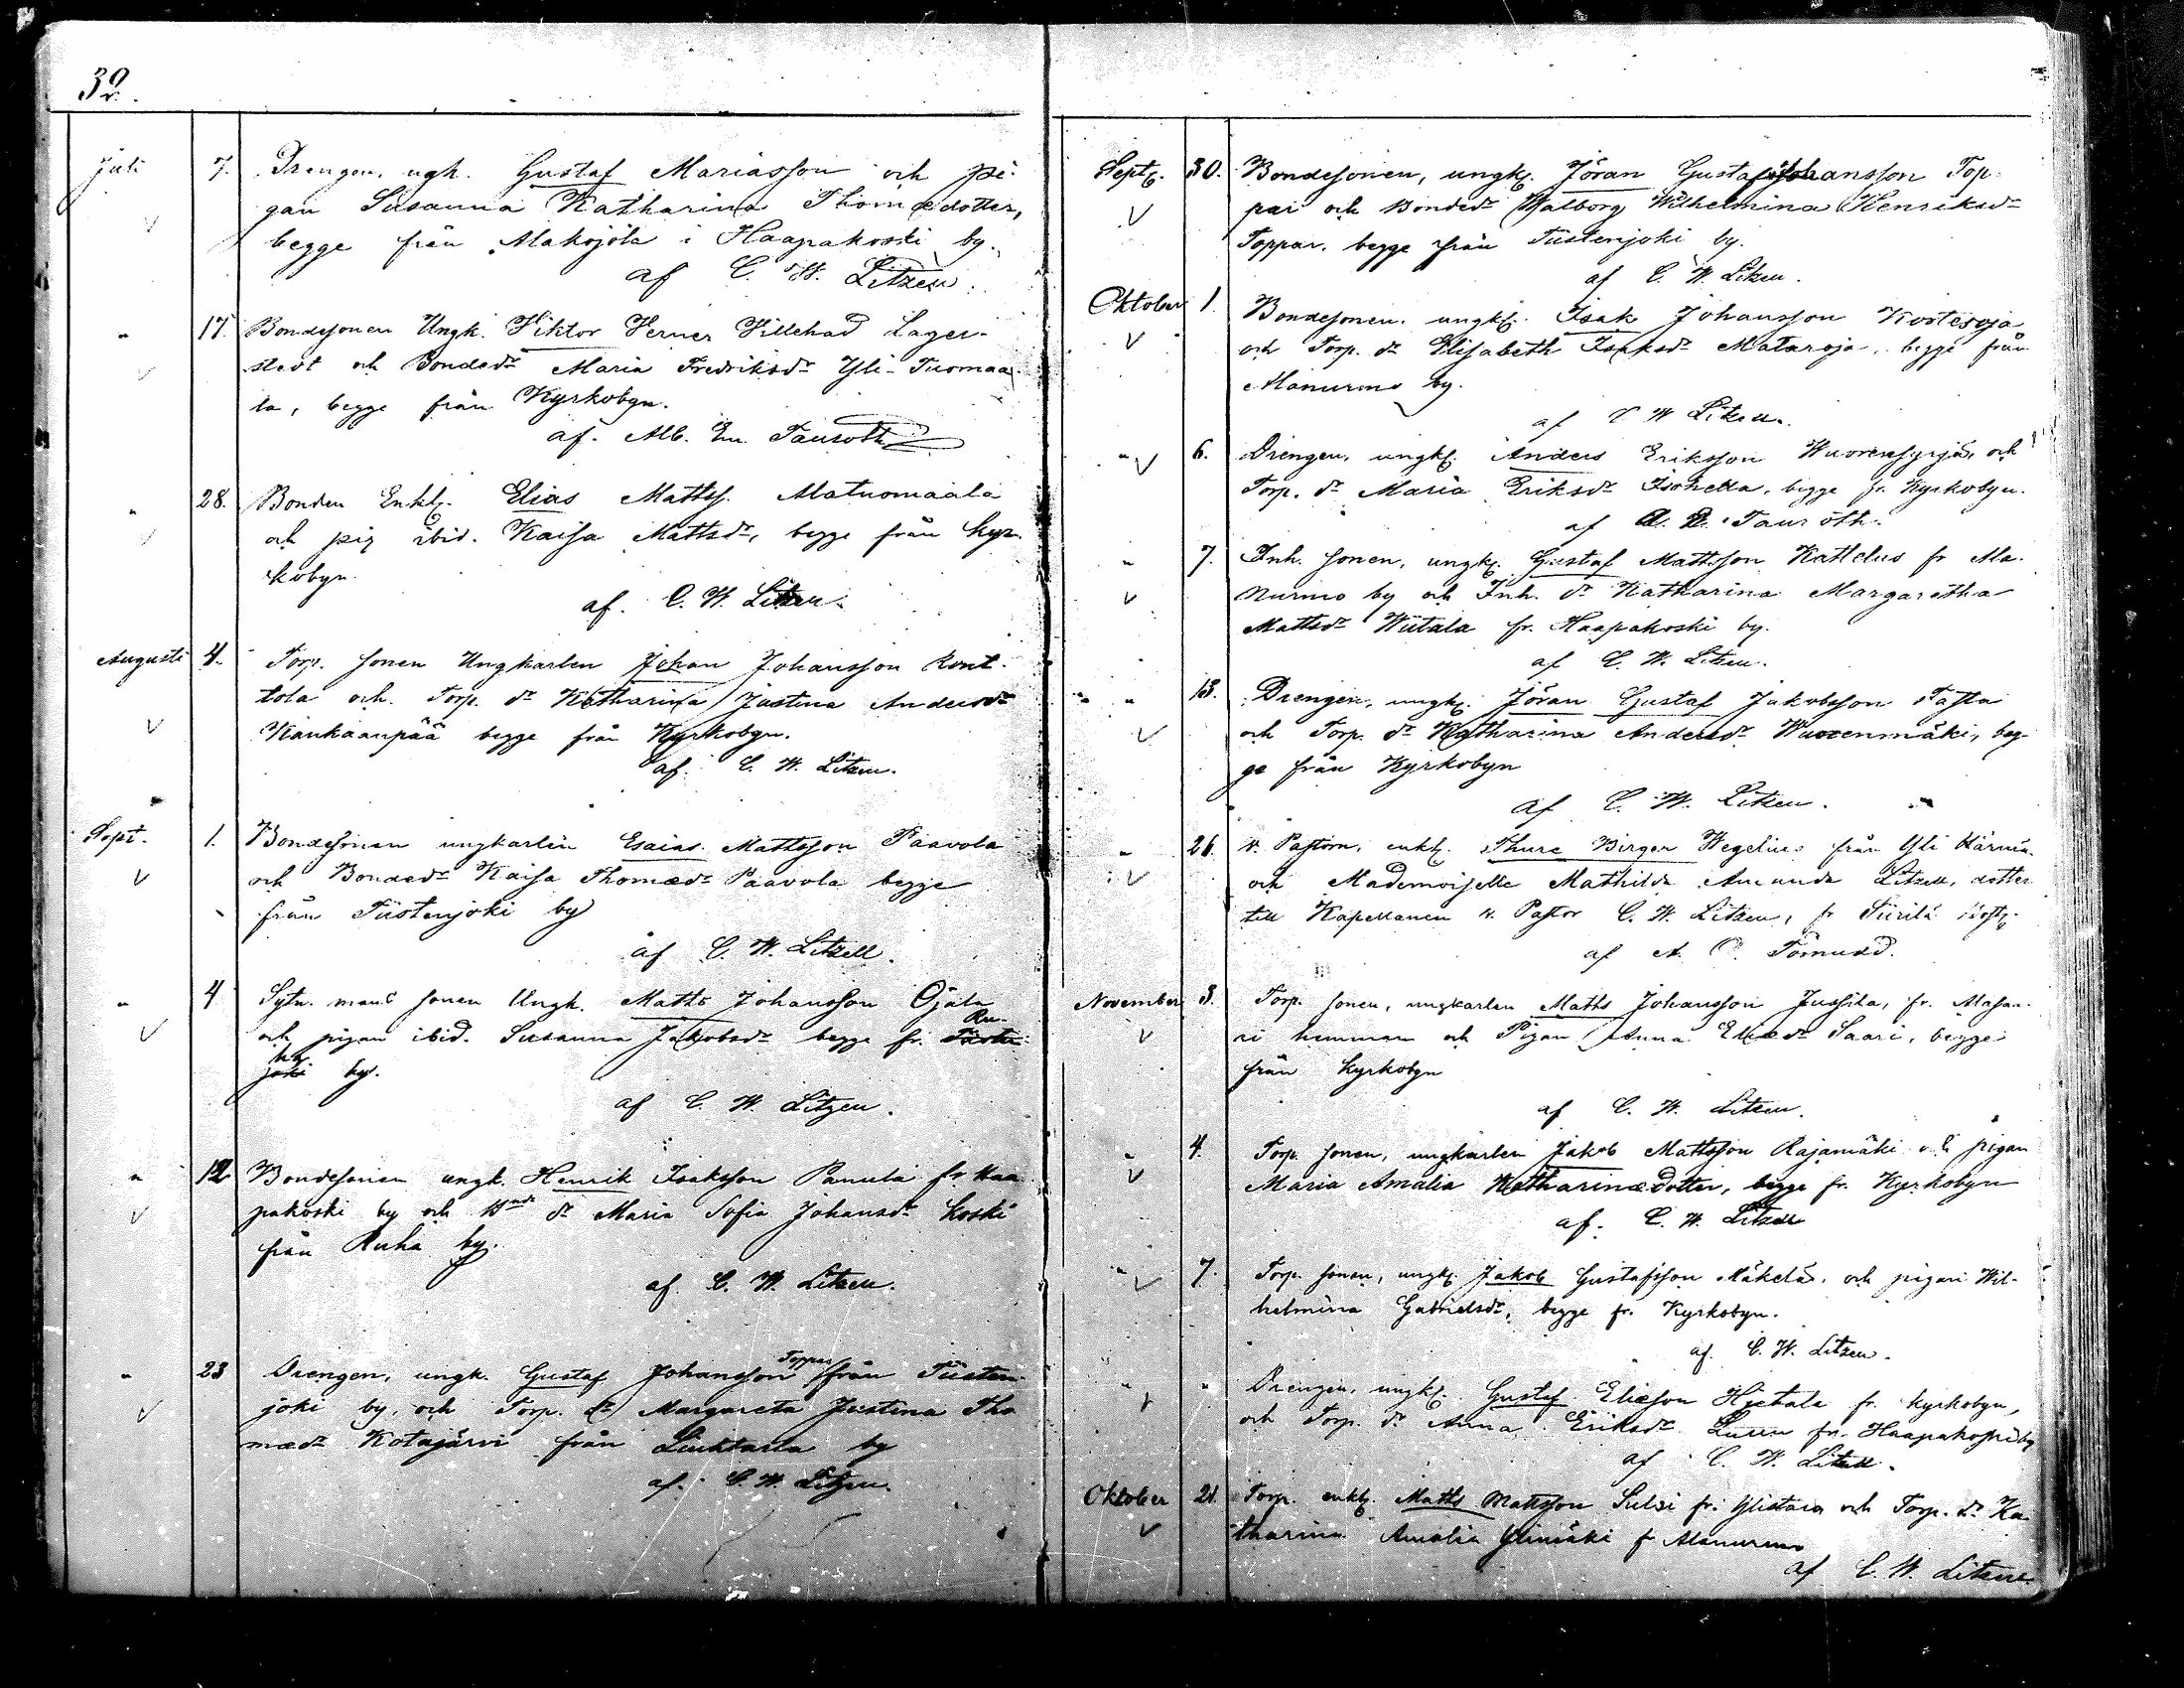 32.
Juli 7. Drengen, ugk. Gustaf Mariasson och pi-
gan Susanna Katharina Thomædotter,
begge från Alakojola i Haapakoski by.
af C. W. Litzell.
" 17. Bondesonen Ungk. Viktor Verner Villehad Lager-
stedt och Bondedr Maria Fredriksdr Yli-Tuomaa-
la, begge från Kyrkobyn.
af. Alb. Em. Tauroth
" 28. Bonden Enkl. Elias Mattss. Alatuomaala
och pig ibid. Kaisa Mattsdr, begge från Kyr-
kobyn.
af. C. W. Litzell.
Augusti 4. Torp. sonen Ungkarlen Johan Johansson Kont-
tola och Torp. dr Katharina Justina Andersdr
Kankaanpää begge från Kyrkobyn.
af. C. W. Litzell.
Sept. 1. Bondesonen ungkarlen Esaias Mattsson Paavola
och Bondedr Kaisa Thomædr Paavola begge
från Tiistenjoki by
af C. W. Litzell.
" 4 Sytn. mans sonen Ungk. Matts Johansson Ojala
Ru-
och pigan ibid. Susanna Jakobsdr begge fr. Tiisten-
ha
joki by.
af C. W. Litzell.
" 12 Bondesonen ungk. Henrik Isaksson Panula fr. Haa-
pakoski by och Bnde dr Maria Sofia Johansdr Koski
från Ruha by.
af. C. W. Litzell.
Toppar
" 23 Drengen, ungk. Gustaf Johansson från Tiisten-
joki by, och Torp. dr Margareta Justina Tho-
mædr Kotajärvi från Liuhtarla by
af. C. W. Litzell.
Sept. 30. Bondesonen, ungk. Jöran Gustaf Johansson Top-
par och Bondedr Walborg Wilhelmina Henriksdr
Toppar, begge från Tiistenjoki by.
af C. W. Litzell.
Oktober 1. Bondesonen, ungk. Isak Johansson Kostesoja
och Torp. dr Elisabeth Isaksdr Mataroja, begge från
Alanurmo by.
af C W Litzell.
" 6. Drengen, ungk. Anders Eriksson Wuorensyrjä, och
Torp. dr Maria Eriksdr Isoketta, begge fr. Kyrkobyn.
af A. E. Tauroth.
" 7. Inh. sonen, ungk. Gustaf Mattsson Kattelus fr Ala-
nurmo by och Inh. dr Katharina Margaretha
Mattsdr Wiitala fr. Haapakoski by.
af C. W. Litzell.
" 13. Drengen, ungk. Jöran Gustaf Jakobsson Pasta
och Torp. dr Katharina Andersdr Wuorenmäki, beg-
ge från Kyrkobyn
af C. W. Litzell.
" 26. v. Pastorn, enkl. Thure Birger Wegelius från Yli Härmä
och Mademoiselle Mathilda Amanda Litzell, dotter
till Kapellanen v. Pastor C. W. Litzell, fr Siirilä Bost.
af A. O. Törnudd.
November 3. Torp. sonen, ungkarlen Matts Johansson Jussila, fr. Alasaa-
ri hemman och Pigan Anna Eliædr Saari, begge
från Kyrkobyn
af C. W. Litzell.
" 4. Torp. sonen, ungkarlen Jakob Mattsson Rajamäki och pigan
Maria Amalia Katharinædotter, begge fr. Kyrkobyn
af. C. W. Litzell
" 7. Torp. sonen, ungk. Jakob Gustafsson Mäkelä, och pigan Wil-
helmina Gabrielsdr, begge fr. Kyrkobyn.
af. C. W. Litzell.
" " Drengen, ungk. Gustaf Eliæson Hietala fr. Kyrkobyn,
och Torp. dr Anna Eriksdr Luuu fr. Haapakoski by
af C. W. Litzell.
Oktober 21. Torp. enkl. Matts Mattsson Sulsi fr. Ylistaro och Torp. dr Ka-
tharina Amalia Ylimäki fr Alanurmo
af C. W. Litzell.